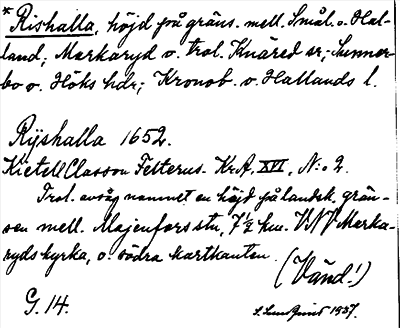 * Rishalla, höjd på gräns. mell. Smål. o. Hal-
land; Markaryd o. trol. Knäred sr; Sunner-
bo o. Höks hdr; Kronob. o. Hallands l.
Rÿshalla 1652.
Kietell Classon Felterus. Kr.A, XVI, N:o 2.
Trol. avsåg namnet en höjd på landsk. grän-
sen mell. Majenfors stn, 7½ km. VNV Marka-
ryds kyrka, o. södra kartkanten.
(Vänd!)
G. 14.
S. Lundquist 1937.